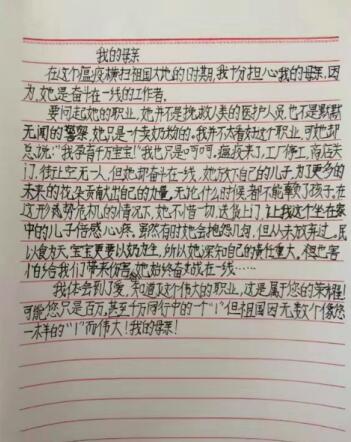 我的母亲
在这个瘟疫横扫祖国大地的时期,我十分担心我的母亲,因
为,她是奋斗在一线的工作者。
要问起她的职业,她并不是挽救人类的医护人员,也不是默默
无闻的警察,她只是一个卖奶粉的。我并不太看好这个职业,可她却
总说:"我孕育千万宝宝!"我也只是呵呵。瘟疫来了,工厂停工,商店关
门,街上空无一人,但她却奋斗在一线,她放下自己的儿子,为了更多的
未来的花朵贡献出自己的力量。无论什么时候都不能饿了孩子。在
这形式势危机的情况下,她不惜一切,送货上门,让我这个坐在家
中的儿子倍感心疼。虽然有时她会抱怨几句,但从未放弃过。民
以食为天,宝宝更要以奶为生,所以她深知自己的责任重大。但也害
怕给我们带来伤害,她始终奋战在一线……
我体会到了爱,知道了这个伟大的职业,这是属于您的荣耀!
可能,您只是百万,甚至千万同行中的一个"1"但祖国因无数个像您
一样的"1"而伟大!我的母亲!